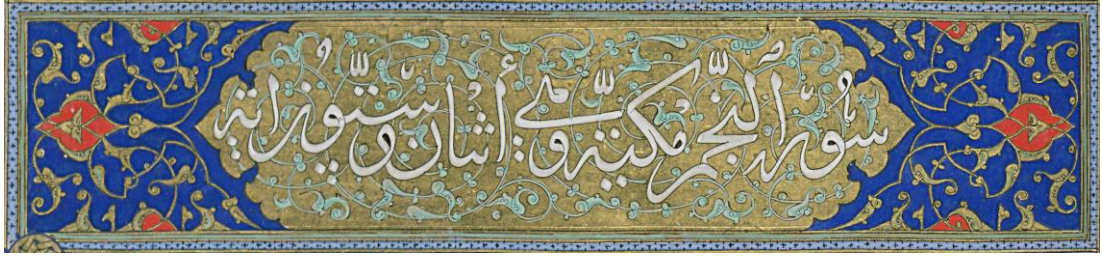 سورة النجم مكية وهي اثنان وستون اية